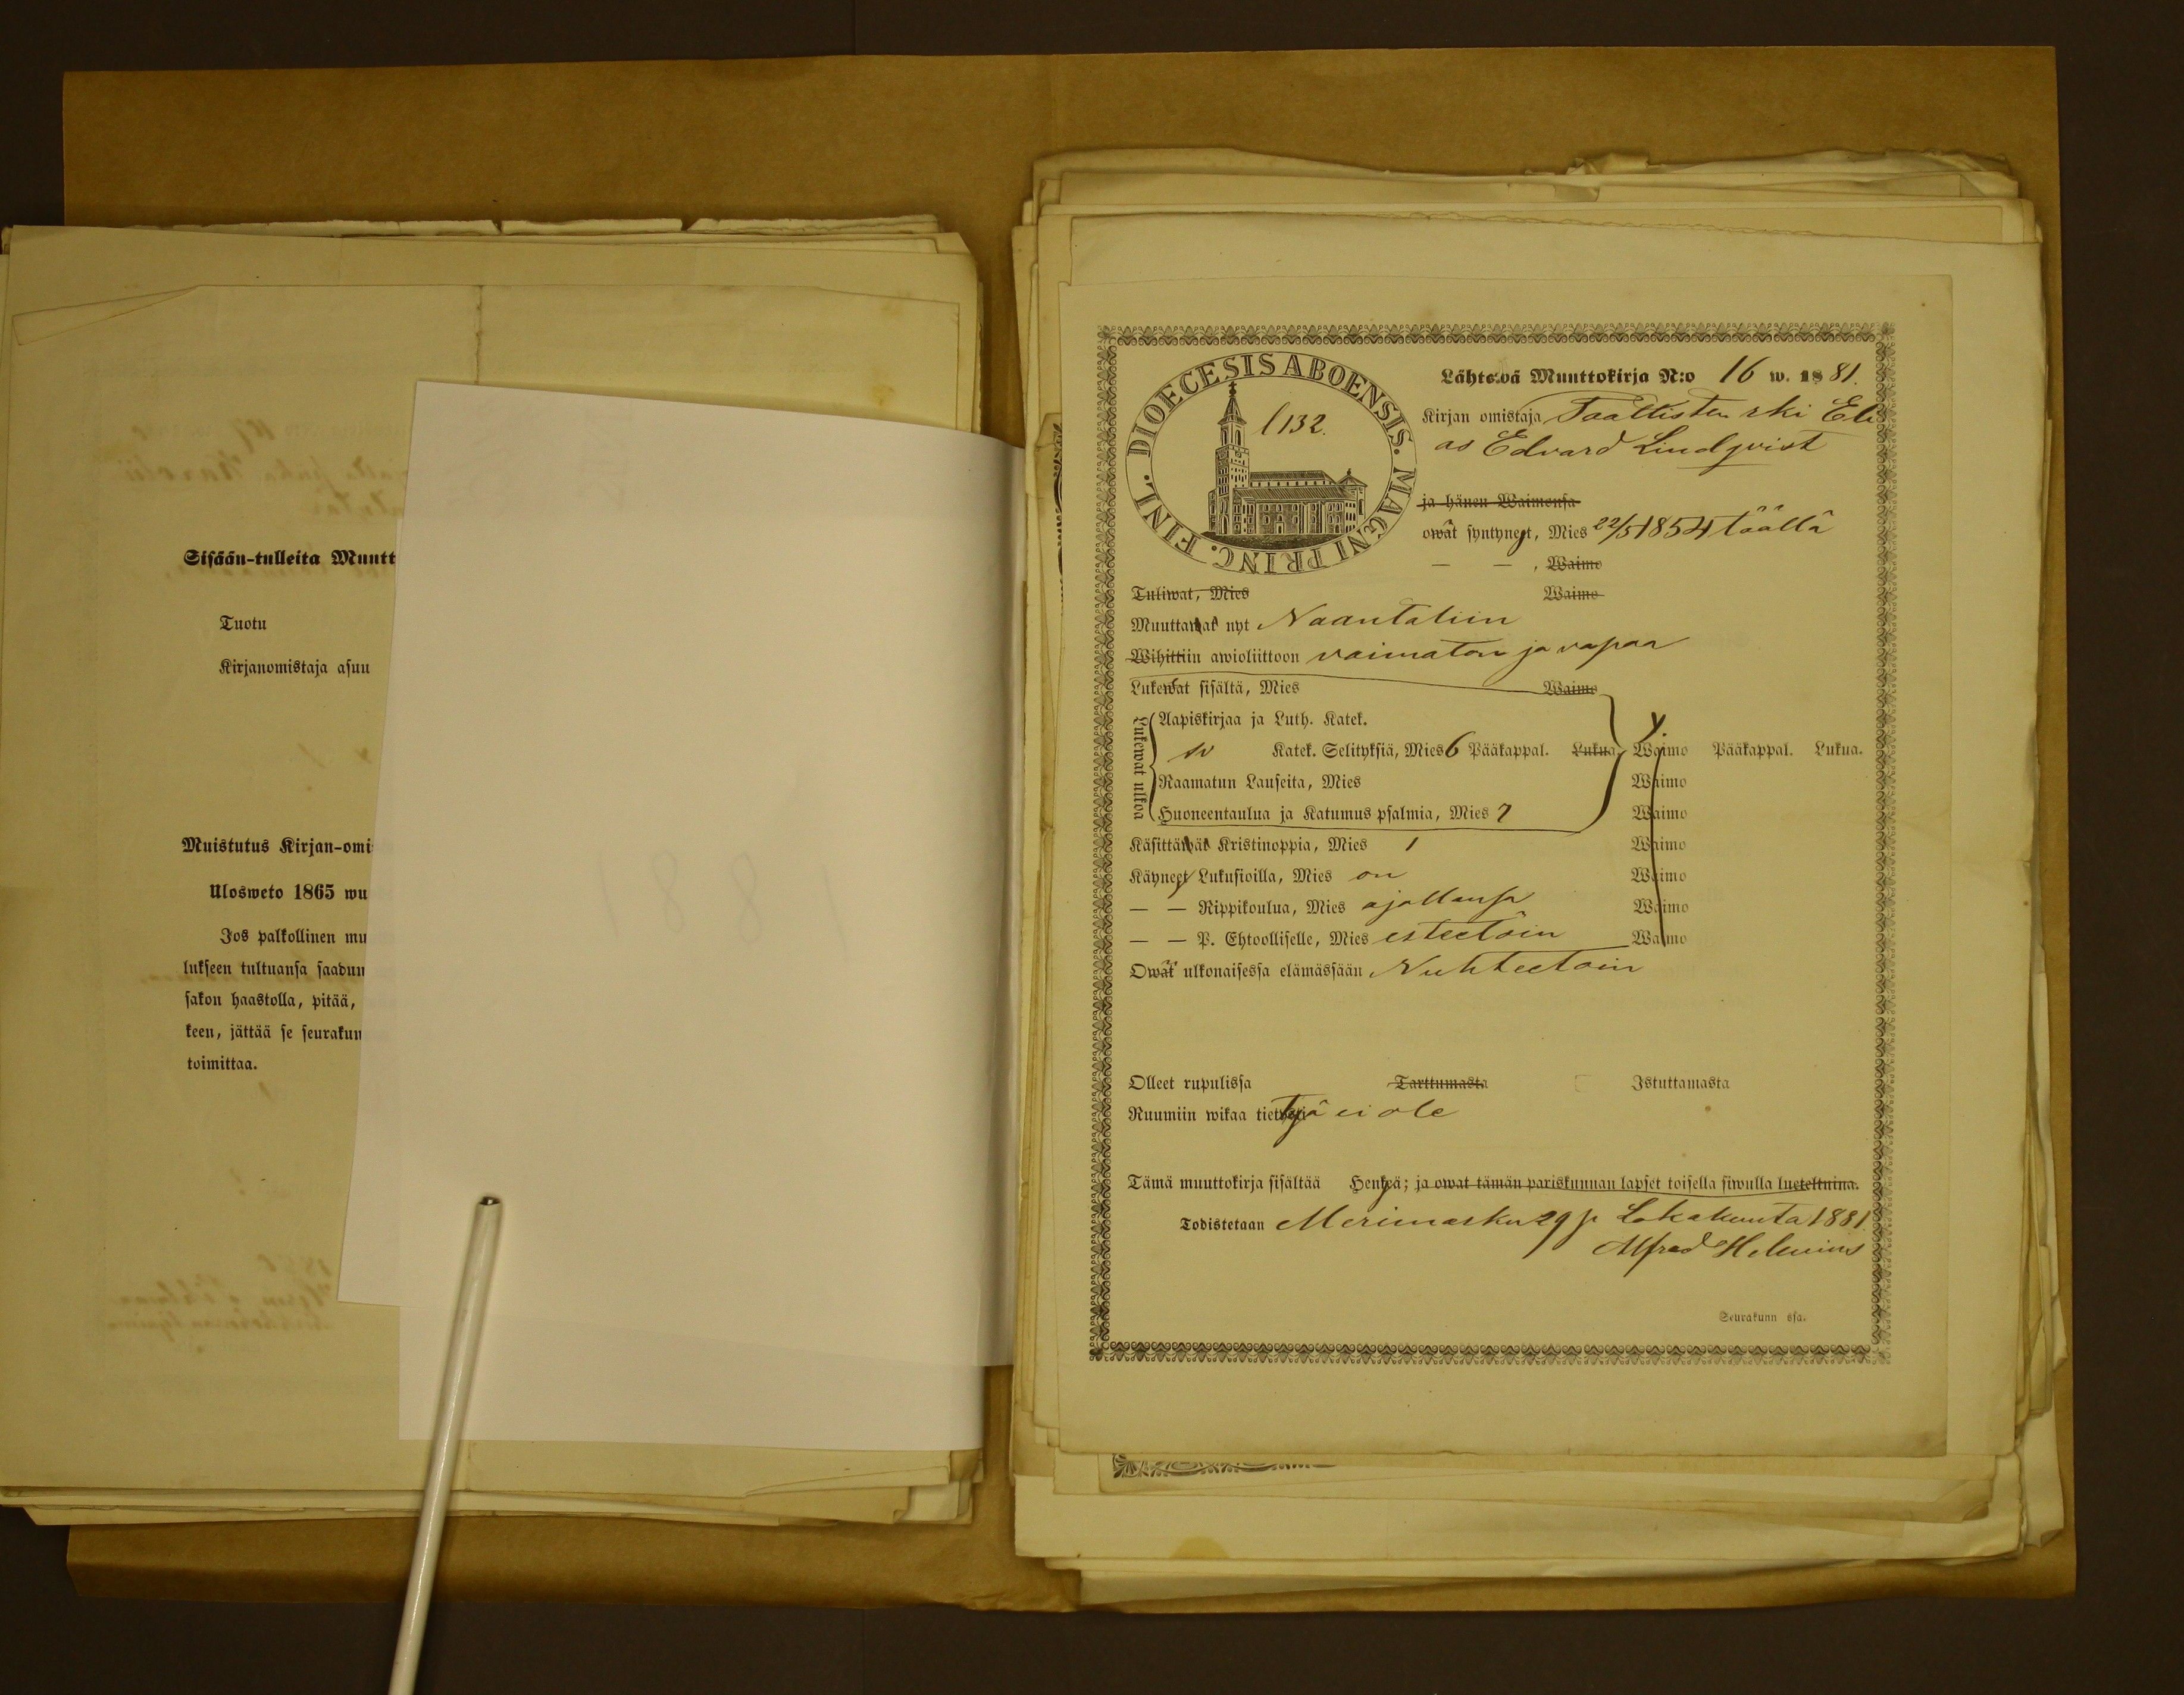 Sisään-tulleita Muutt
Tuotu
Kirjanomistaja asuu
Muistutus Kirjan-omi
Ulosweto 1865 wu
Jos palkollinen mu
lukseen tultuansa saadun
sakon haastolla, pitää,
keen, jättää se seurakun
toimittaa.
1881
DIOECESIS ABOENSIS. MAGNI PRINC. FINL.
l 132.
Lähtewä Muuttokirja N:o 16 w. 1881.
Kirjan omistaja Eli
as Edvard Lindqvist
ja hänen Waimonsa
owat syntynyt, Mies 22/5 1854 täällä
— — , Waimo
Tuliwat, Mies Waimo
Muuttawat nyt Naantaliin
Wihittiin awioliittoon vaimaton ja vapaa
Lukewat sisältä, Mies Waimo
Lukewat ulkoa
Aapiskirjaa ja Luth. Katek.
Katek. Selityksiä, Mies 6 Pääkappal. Lukua. Waimo Pääkappal. Lukua.
Raamatun Lauseita, Mies Waimo
Huoneentaulua ja Katumus psalmia, Mies 7 Waimo
Käsittäwät Kristinoppia, Mies 1 Waimo
Käyneet Lukusioilla, Mies on Waimo
— — Rippikoulua, Mies ajallansa Waimo
— — P. Ehtoolliselle, Mies esteetöin Waimo
Owat ulkonaisessa elämässään Nuhteetoin
Olleet rupulissa Tarttumasta Istuttamasta
Ruumiin wikaa tiettyä ei ole
Tämä muuttokirja sisältää Henkeä; ja owat tämän pariskunnan lapset toisella siwulla lueteltuina.
Todistetaan Merimasku 29 p Lokakuuta 1881.
Alfred Helenius
Seurakunn ssa.